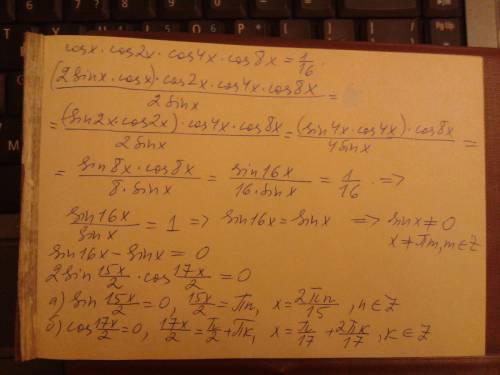 cosx·cos2x·cos4x·cos8x = 1/16.
(2sinx·cosx)·cos2x·cos4x·cos8x / 2sinx =
= (sin2x·cos2x)·cos4x·cos8x / 2sinx = (sin4x·cos4x)·cos8x / 4sinx =
= sin8x·cos8x / 8·sinx = sin16x / 16·sinx = 1/16 ·=>
sin16x / sinx = 1 => sin16x = sinx => sinx≠0
x≠πm, m∈Z
sin16x - sinx = 0
2sin 15x/2 · cos 17x/2 = 0
а) sin 15x/2 = 0, 15x/2 = πn, x = 2πn/15, n∈Z
б) cos 17x/2 = 0, 17x/2 = π/2 + πk, x = π/17 + 2πk/17, k∈Z